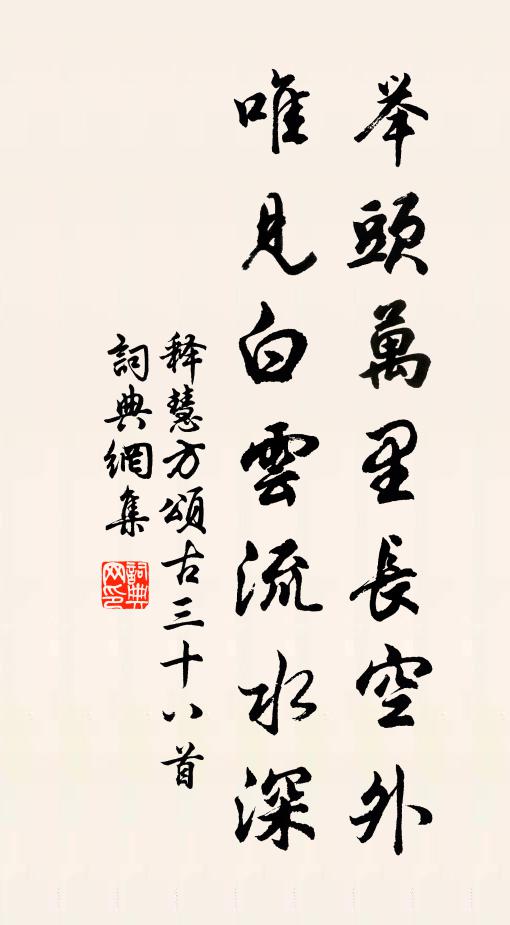 举頭萬里長空外
唯見白雲流水深
释慧方頌古三十八首
詞典網集
詞典网印